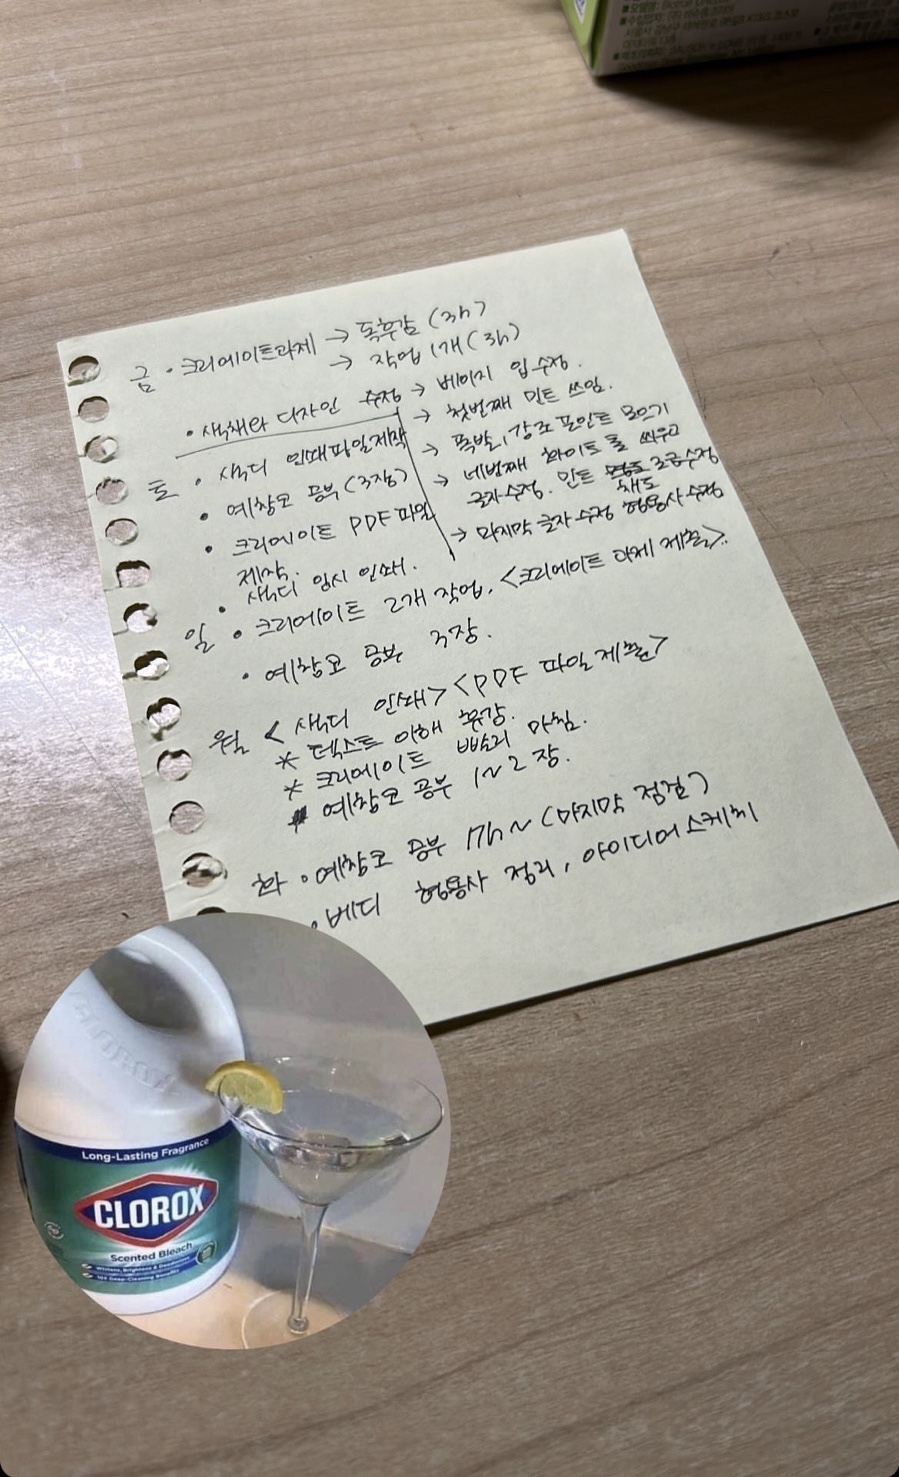 금 · 크리에이트과제 → 독후감 (3h)
→ 작업 1개 (3h)
· 색채와 디자인 수정 → 베이지 입 수정.
→ 첫번째 민트 쓰임.
→ 폭발, 강조 포인트 모으기
→ 네번째 화이트 톤 씌우고
글자수정. 민트 채도 조금수정
→ 마지막 글자 수정 형용사 수정
토 · 색디 인쇄파일제작
· 예창코 공부 (3장)
· 크리에이트 PDF 파일
제작.
· 색디 임시 인쇄.
일 · 크리에이트 2개 작업. <크리에이트 과제 제출>.
· 예창코 공부 3장.
월 < 색디 인쇄> <PDF 파일 제출>
* 텍스트 이해 휴강.
* 크리에이트 빨리 마침.
* 예창코 공부 1~2 장.
화 · 예창코 공부 17h~ (마지막 점검)
· 베디 형용사 정리, 아이디어 스케치
Long-Lasting Fragrance
CLOROX
Scented Bleach